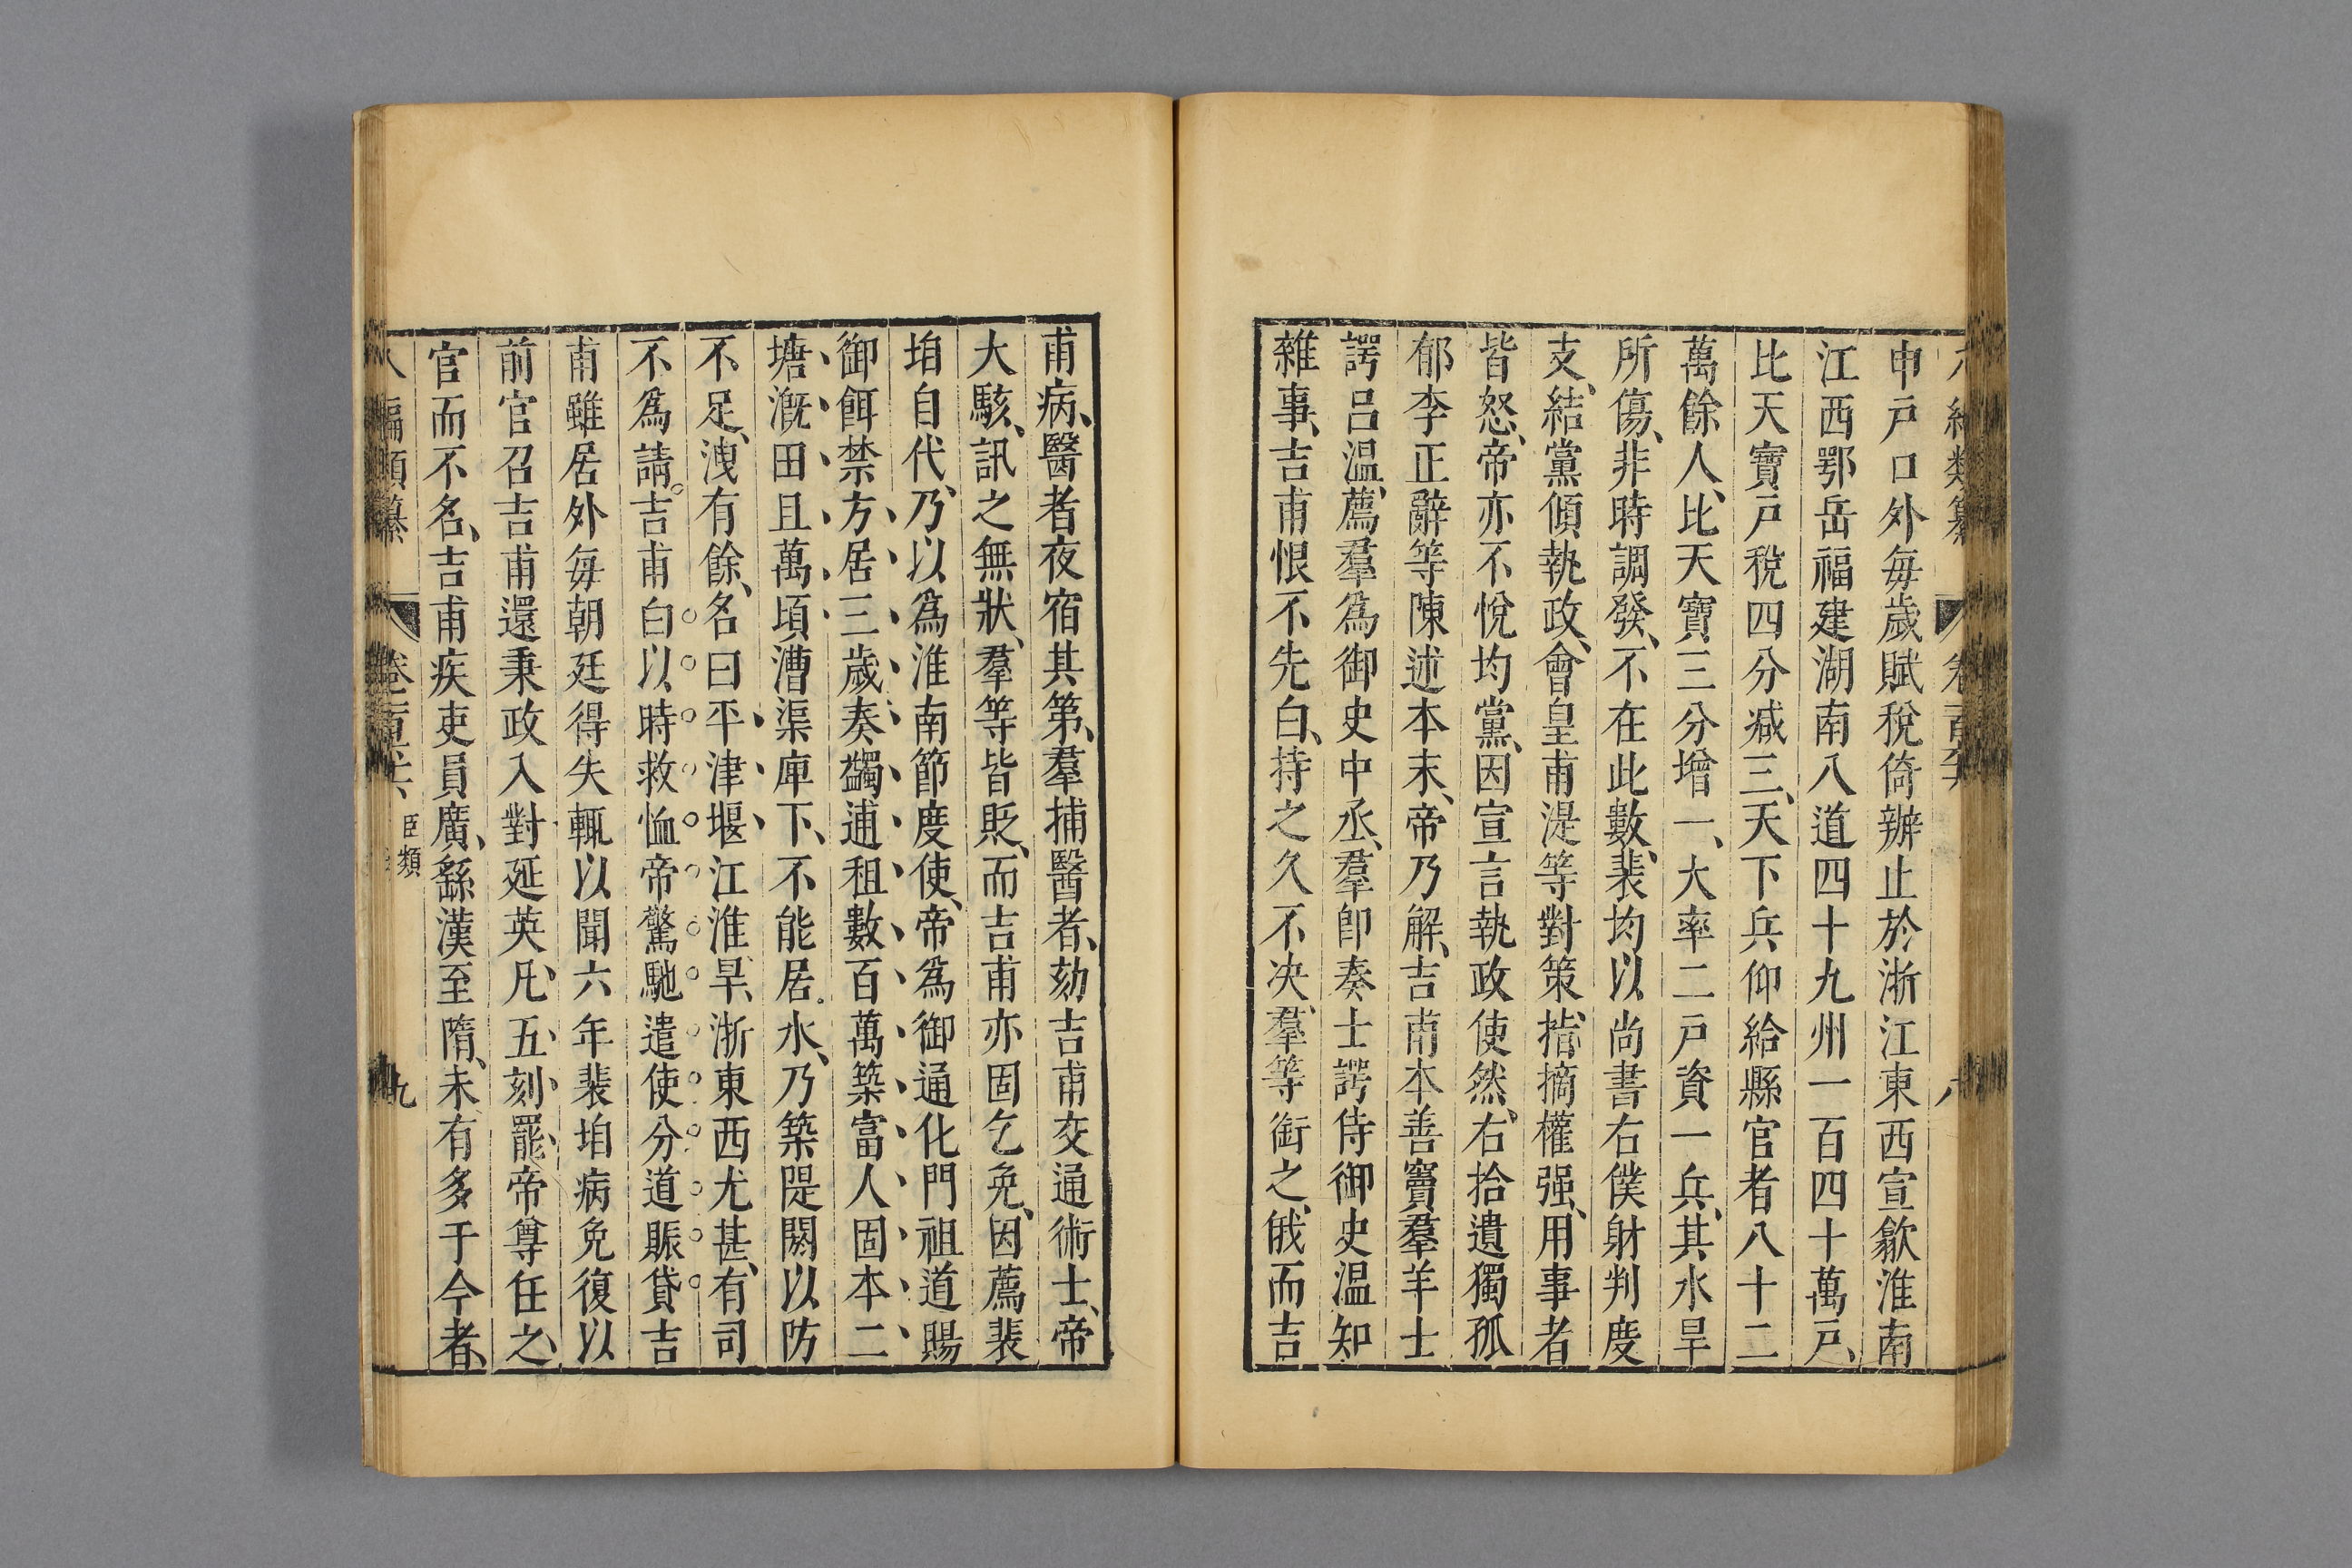 申戸口外每歲賦稅倚辦止於浙江東西宣歙淮南
江西鄂岳福建湖南八道四十九州一百四十萬戸、
比天寶戸稅四分減三、天下兵仰給縣官者八十二
萬餘人、比天寶三分增一、大率二戸資一兵、其水旱
所傷、非時調發、不在此數、裴均以尚書右僕射判度
支、結黨傾執政、會皇甫湜等對策、指摘權强、用事者
皆怒、帝亦不悅均黨、因宣言執政使然、右拾遺獨孤
郁李正辭等陳述本末、帝乃解、吉甫本善竇羣羊士
諤呂温、薦羣爲御史中丞、羣卽奏士諤侍御史温知
雜事、吉甫恨不先白、持之久不决、羣等銜之、俄而吉
甫病、醫者夜宿其第、羣捕醫者、劾吉甫交通術士、帝
大駭、訊之無狀、羣等皆貶、而吉甫亦固乞免、因薦裴
垍自代、乃以爲淮南節度使、帝爲御通化門祖道賜
御餌禁方、居三歲、奏蠲逋租數百萬築富人固本二
塘、漑田且萬頃漕渠庳下、不能居水、乃築隄閼以防
不足、洩有餘、名曰平津堰江淮旱、浙東西尤甚、有司
不爲請。吉甫白以時救恤帝驚馳遣使分道賑貸吉
甫雖居外每朝廷得失輒以聞六年裴垍病免復以
前官召吉甫還秉政入對延英、凡五刻罷、帝尊任之、
官而不名、吉甫疾吏員廣、繇漢至隋、未有多于今者、
八編類纂 卷一百六十六、 臣類 九